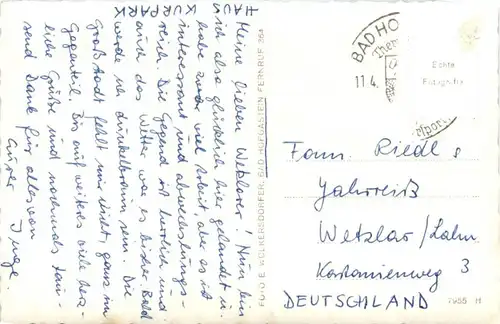 HAUS
KURPARK
Meine lieben Wetzlarer! Nun bin
ich also glücklich hier gelandet u.
habe zwar viel Arbeit aber es ist
interessant und abwechslungs-
reich. Die Gegend ist herrlich und
auch das Wetter war es bisher. Bald
werde ich dunkelbraun sein. Die
Großstadt fehlt mir nicht, ganz im
Gegenteil. Bis auf weiteres viele herz-
liche Grüße und nochmals tau-
send Dank für alles von
Eurer Inge.
FOTO E. WOLKERSDORFER, BAD HOFGASTEIN FERNRUF 364
BAD HO
Ther
11.4.
Echte
Fotografie
mpor
Fam. Riedl,
Jahreiß
Wetzlar/Lahn
Kastanienweg 3
DEUTSCHLAND
7955 H